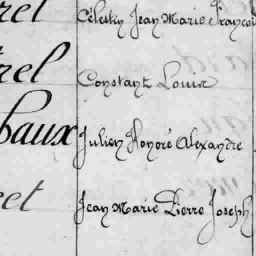 rel Célestin Jean Marie François
rel Constant Louis
baux Julien Honoré Alexandre
et Jean Marie Pierre Joseph